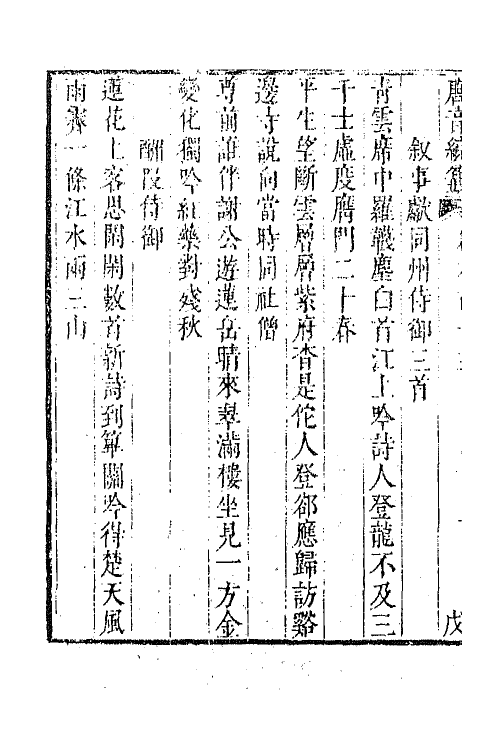 唐音統籤
戊
叙事獻同州侍御三首
青雲席中羅韈塵白首江上吟詩人登龍不及三
千士虛度膺門二十春
平生望斷雲層層紫府杳是佗人登郤應歸訪谿
邊寺說向當時同社僧
尊前語伴謝公遊蓮岳晴來翠滿樓坐見一方金
變化獨吟紅藥對殘秋
酬段侍御
蓮花上客思閑閑數首新詩到篳關吟得楚天風
雨霽一條江水兩三山